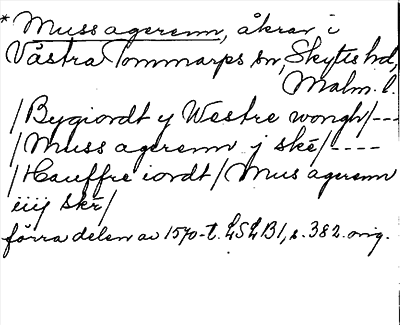 * Mussagerenn, åkrar i
Västra Tommarps sn, Skytts hd,
Malm. l.
/Bygiordt y Westre wongh/---
/Muss agerenn j skē/----
/Hauffre iordt/Mus agerenn
iiij skr/
förra delen av 1570-t. LSLB1, s. 382. orig.